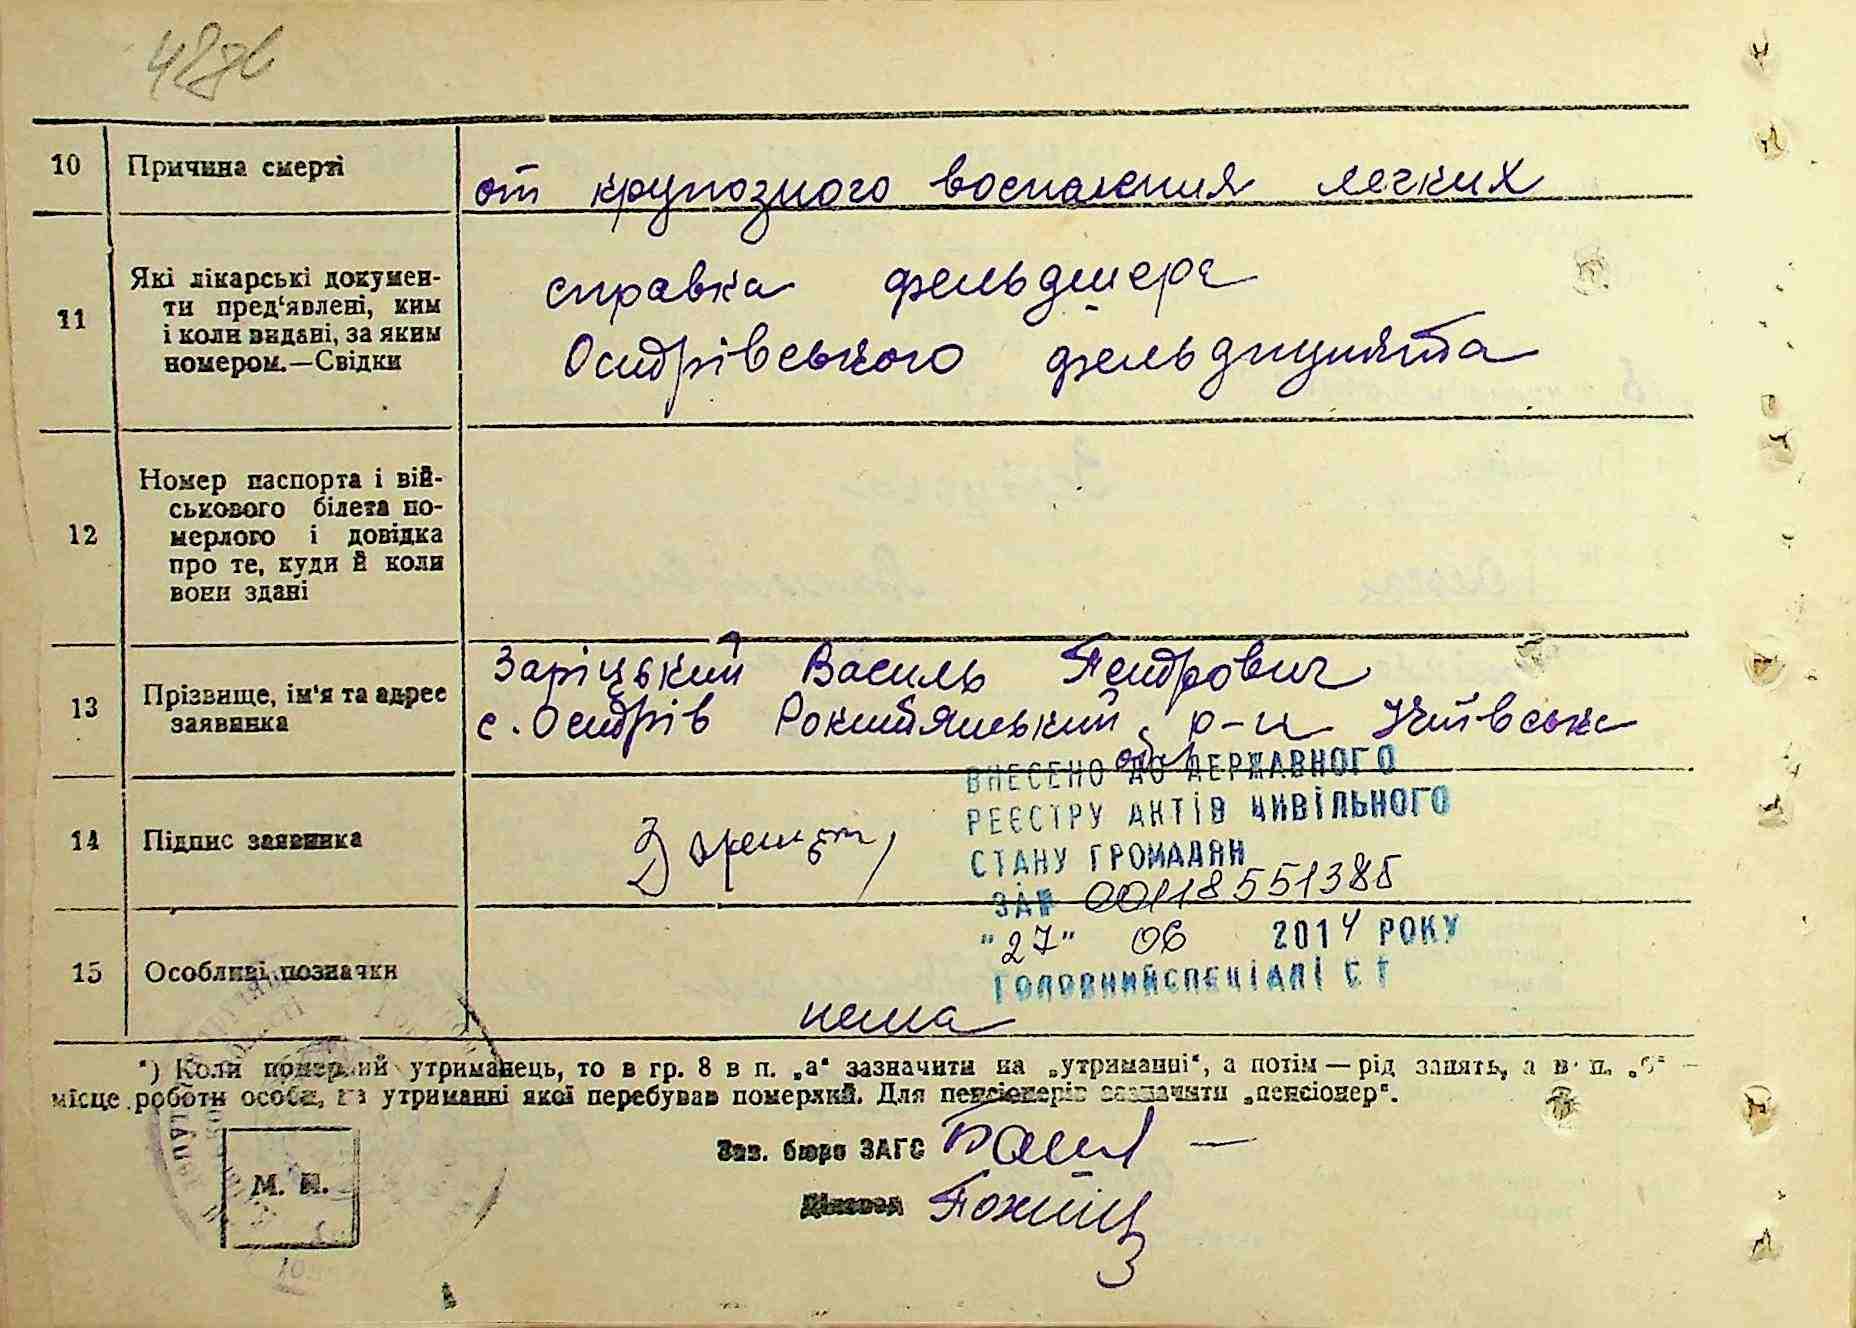 42зв
10 Причина смерті
от крупозного воспаления легких
11 Які лікарські докумен-
ти пред'явлені, ким
і коли видані, за яким
номером.—Свідки
справка фельдшера
Острівського фельдпункта
12 Номер паспорта і вій-
ськового білета по-
мерлого і довідка
про те, куди й коли
вони здані
13 Прізвище, ім'я та адрес
заявника
Заріцький Василь Петрович
с. Острів Рокитянський р-н Київськ
обл
14 Підпис заявника
ВНЕСЕНО ДО ДЕРЖАВНОГО
РЕЄСТРУ АКТІВ ЦИВІЛЬНОГО
СТАНУ ГРОМАДЯН
ЗА № 00118551385
"27" 06 2014 РОКУ
ГОЛОВНИЙ СПЕЦІАЛІСТ
15 Особливі позначки
нема
*) Коли померлий утриманець, то в гр. 8 в п. „а“ зазначити на „утриманні“, а потім — рід занять, а в п. „б“ —
місце роботи особи, на утриманні якої перебував померлий. Для пенсіонерів зазначити „пенсіонер“.
Зав. бюро ЗАГС
М. П.
Діловод